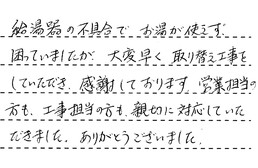 給湯器の不具合で お湯が使えず、
困っていましたが 大変早く 取り替え工事を
していただき 感謝しております。営業担当の
方も、工事担当の方も、親切に対応していた
だきました。ありがとうございました。